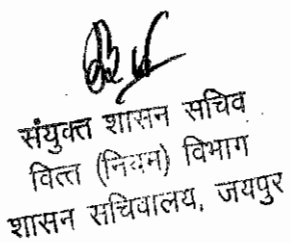 संयुक्त शासन सचिव
वित्त (नियम) विभाग
शासन सचिवालय, जयपुर